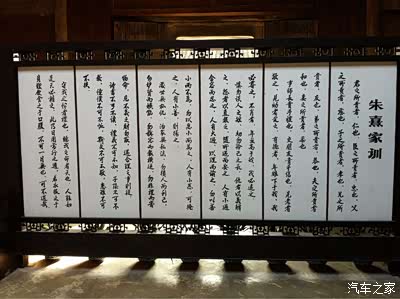 朱熹家训
君之所贵者，仁也。臣之所贵者，忠也。父
之所贵者，慈也。子之所贵者，孝也。兄之所
贵者，友也。弟之所贵者，恭也。夫之所贵者，
和也。妇之所贵者，柔也。
事师长贵乎礼也，交朋友贵乎信也。见老者，
敬之；见幼者，爱之。有德者，年虽下于我，我
必尊之；不肖者，年虽高于我，我必远之。
慎勿谈人之短，切勿矜己之长。仇者以义解
之，怨者以直报之，随遇而安之。人有小过，
含容而忍之；人有大过，以理而谕之。勿以善
小而不为，勿以恶小而为之。人有恶，则掩
之；人有善，则扬之。
处世无私仇，治家无私法。勿损人而利己，
勿妒贤而嫉能。勿称忿而报横逆，勿非礼而害
物命。见不义之财勿取，遇合理之事则从。
诗书不可不读，礼义不可不知。子孙不可不
教，童仆不可不恤。斯文不可不敬，患难不可
不扶。
守我之分者，礼也；听我之命者，天也。人能如
是，天必相之。此乃日用常行之道，若衣服之于
身体，饮食之于口腹，不可一日无也，可不慎哉
汽车之家